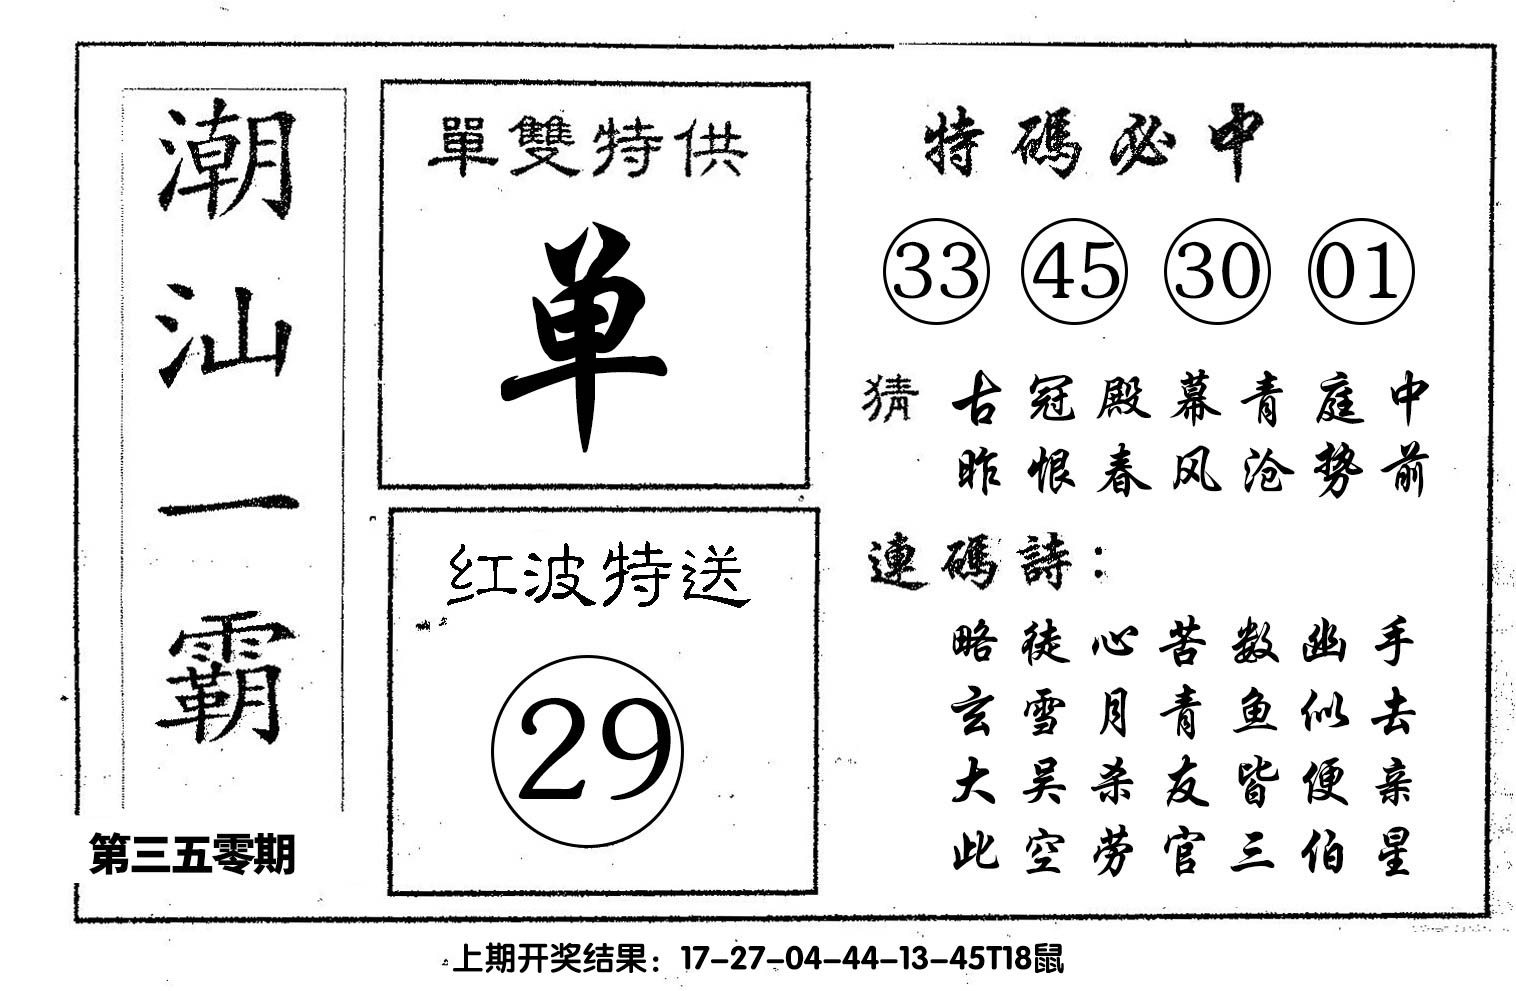 潮汕一霸
第三五零期
單雙特供
单
红波特送
29
特碼必中
33 45 30 01
猜 古冠殿幕青庭中
昨恨春风沧势前
連碼詩：
略徒心苦数幽手
玄雪月青鱼似去
大吴杀友皆便亲
此空劳官三伯星
上期开奖结果：17-27-04-44-13-45T18鼠